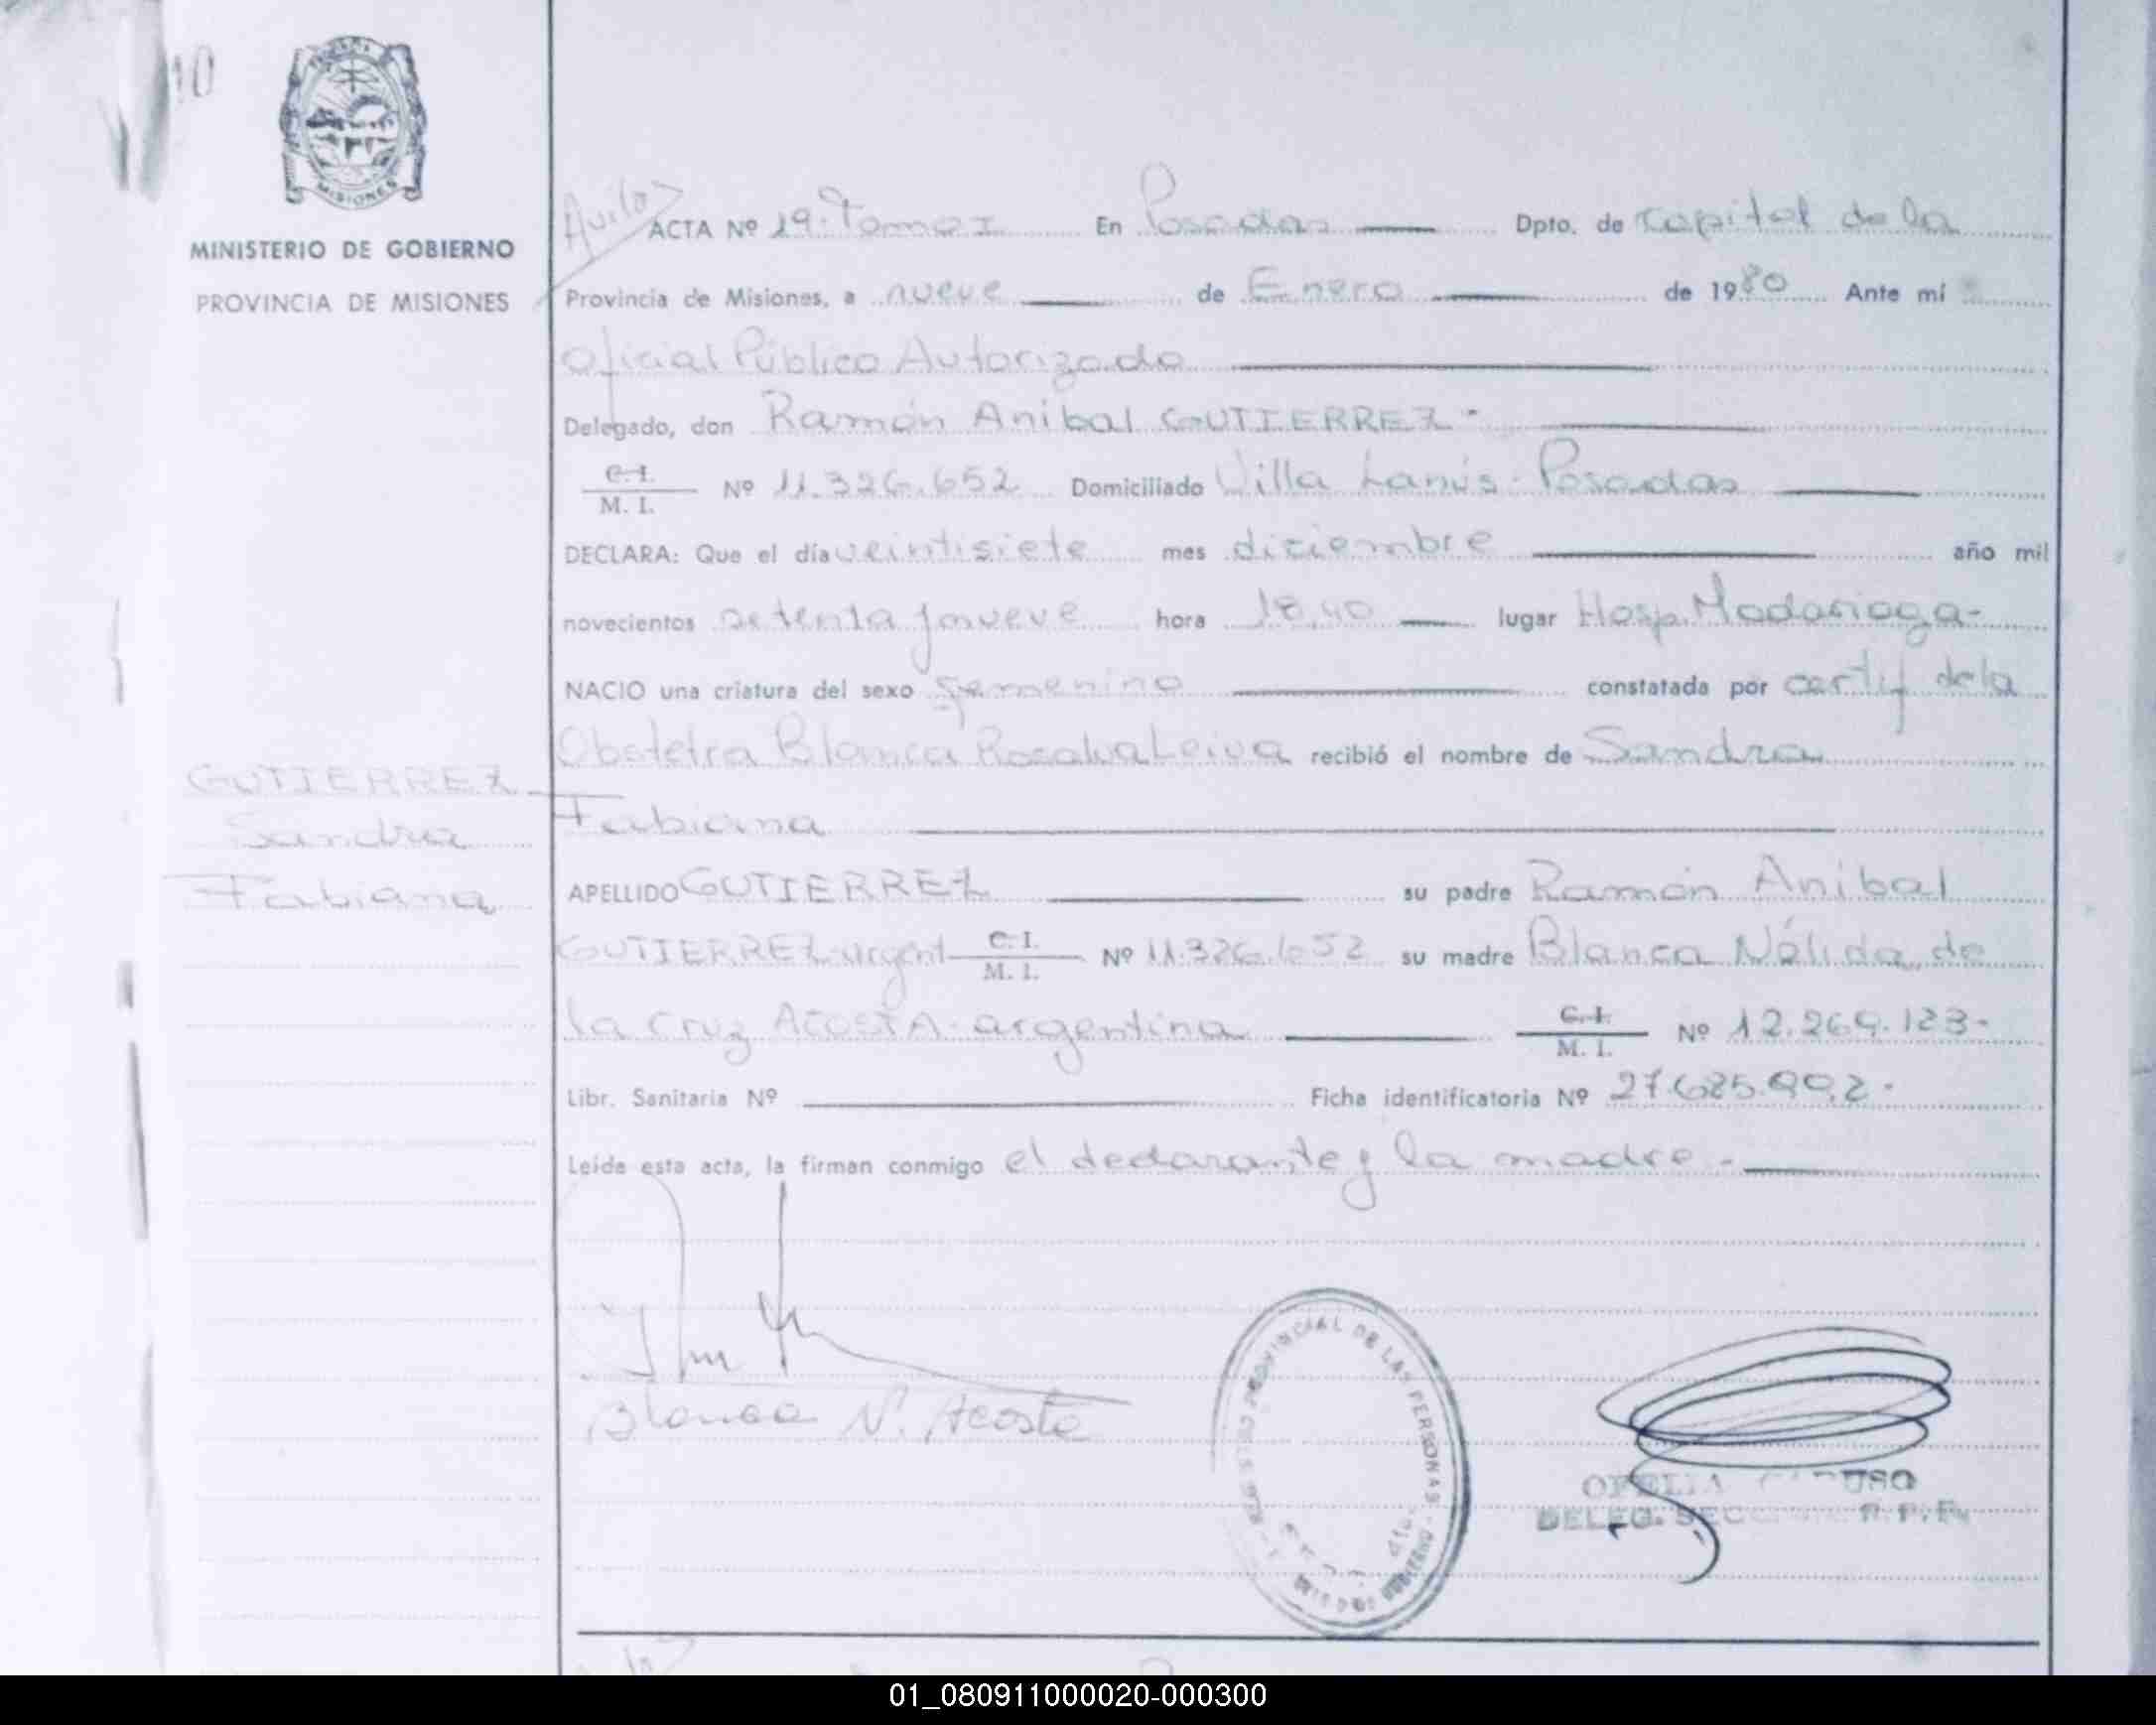 10
MISIONES
MINISTERIO DE GOBIERNO
PROVINCIA DE MISIONES
GUTIERREZ
Sandra
Fabiana
ACTA Nº 19. Tomo I En Posadas Dpto. de Capital de la
Provincia de Misiones, a nueve de Enero de 1980 Ante mí
Oficial Público Autorizado
Delegado, don Ramón Anibal GUTIERREZ-
C.I. M. I. Nº 11.326.652 Domiciliado Villa Lanús-Posadas
DECLARA: Que el día veintisiete mes diciembre año mil
novecientos setenta y nueve hora 18,40 lugar Hosp. Madariaga-
NACIO una criatura del sexo femenino constatada por certif de la
Obstetra Blanca Rosalva Leiva recibió el nombre de Sandra
Fabiana
APELLIDO GUTIERREZ su padre Ramón Anibal
GUTIERREZ argent C.I. M. I. Nº 11.326.652 su madre Blanca Nélida de
la Cruz ACOSTA-argentina C.I. M. I. Nº 12.269.123-
Libr. Sanitaria Nº Ficha identificatoria Nº 27.685.992-
Leída esta acta, la firman conmigo el declarante y la madre-
Blanca N. Acosta
PROVINCIAL DE LAS PERSONAS
OFELIA
DELEG.
01_080911000020-000300